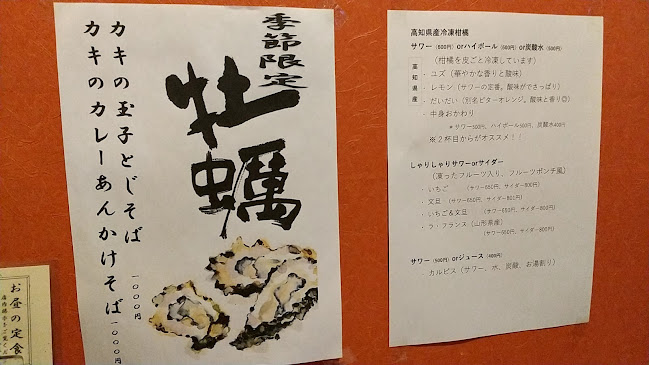 季節限定
牡蠣
カキの玉子とじそば 一〇〇〇円
カキのカレーあんかけそば 一〇〇〇円
お昼の定食
高知県産冷凍柑橘
サワー（600円）orハイボール（600円）or炭酸水（500円）
（柑橘を皮ごと冷凍しています）
高知県産
・ユズ（華やかな香りと酸味）
・レモン（サワーの定番。酸味がでさっぱり）
・だいだい（別名ビターオレンジ。酸味と香り◎）
・半身おかわり
＊サワー500円、ハイボール500円、炭酸水400円
※２杯目からがオススメ！！
しゃりしゃりサワーorサイダー
（凍ったフルーツ入り、フルーツポンチ風）
・いちご （サワー650円、サイダー600円）
・文旦 （サワー650円、サイダー601円）
・いちご＆文旦 （サワー650円、サイダー600円）
・ラ・フランス（山形県産）
（サワー650円、サイダー600円）
サワー（500円）orジュース（400円）
・カルピス（サワー、水、炭酸、お湯割り）